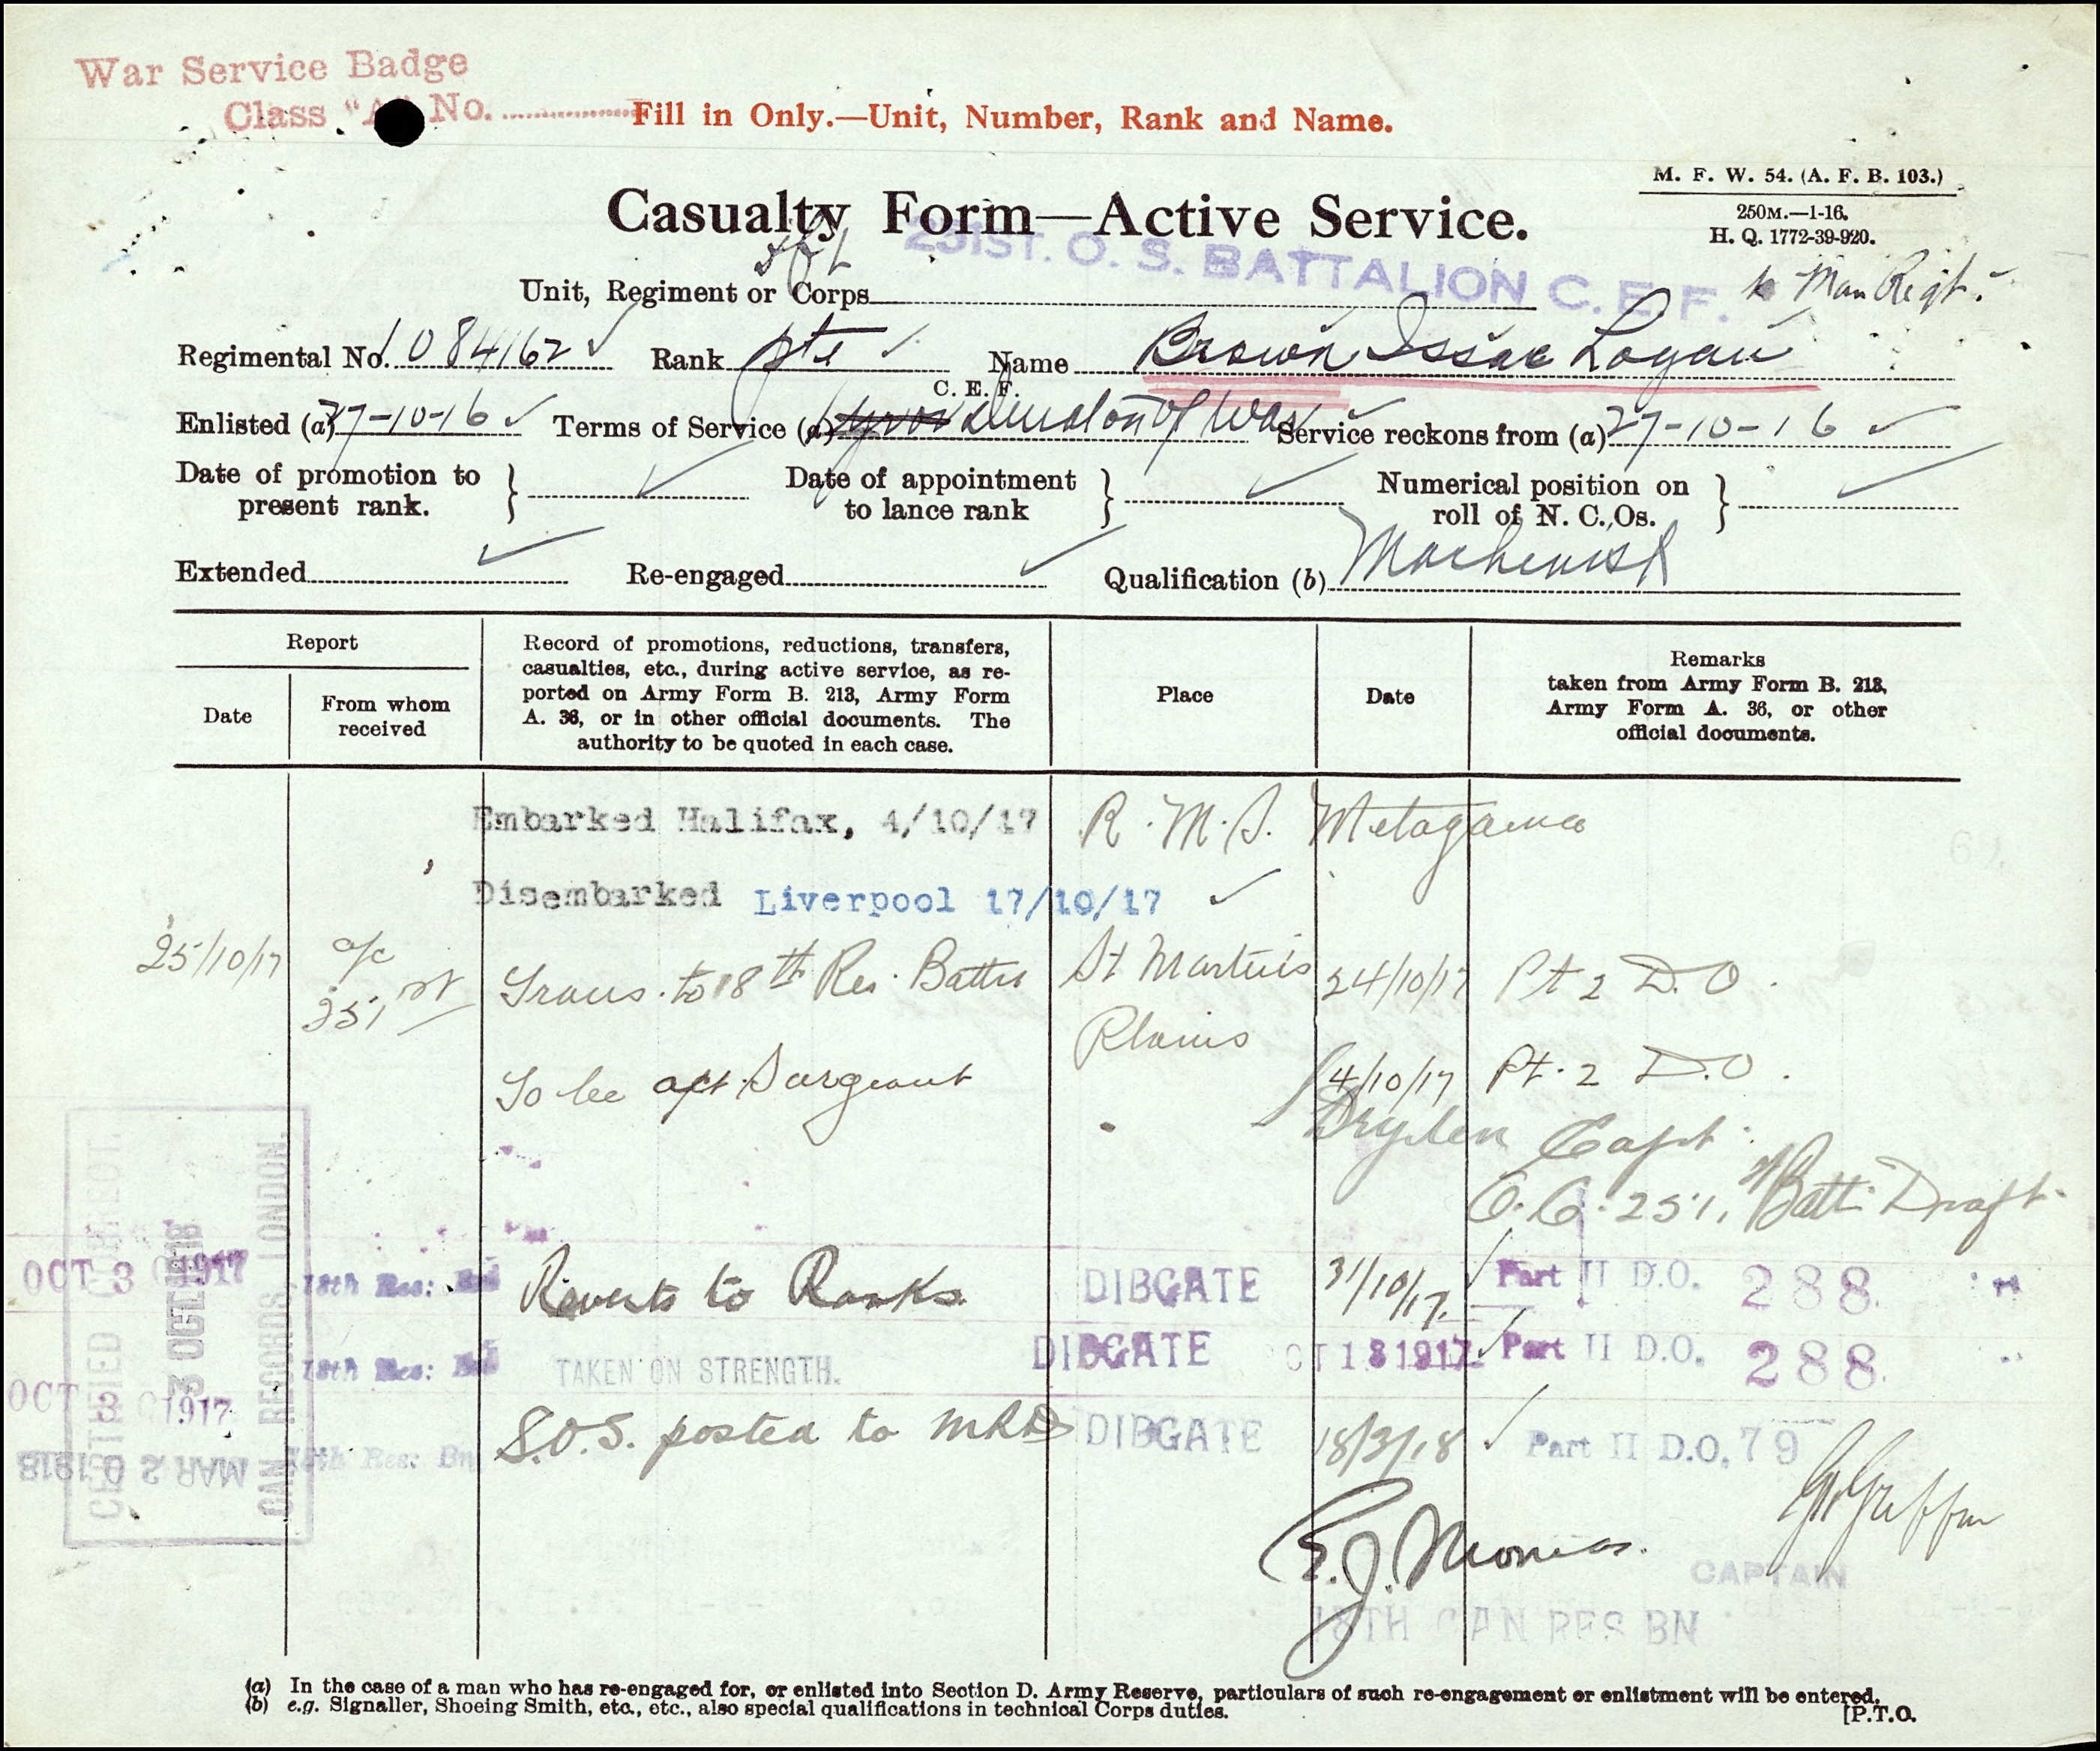 War Service Badge
Class "A" No.
Fill in Only.—Unit, Number, Rank and Name.
M. F. W. 54. (A. F. B. 103.)
250M.—1-16.
H. Q. 1772-39-920.
Casualty Form—Active Service.
251ST. O. S. BATTALION C. E. F.
to Man Regt.
Unit, Regiment or Corps
Regimental No. 1084162 Rank Pte Name Brown Issac Logan
C. E. F.
Enlisted (a) 27-10-16 Terms of Service (a) duration of War Service reckons from (a) 27-10-16
Date of promotion to present rank. } Date of appointment to lance rank } Numerical position on roll of N. C. Os. }
Extended Re-engaged Qualification (b) Machinist
Report
Date
From whom received
Record of promotions, reductions, transfers,
casualties, etc., during active service, as re-
ported on Army Form B. 213, Army Form
A. 36, or in other official documents. The
authority to be quoted in each case.
Place
Date
Remarks
taken from Army Form B. 213,
Army Form A. 36, or other
official documents.
Embarked Halifax, 4/10/17 R.M.S. Metagama
Disembarked Liverpool 17/10/17
25/10/17 o/c 251st Trans. to 18th Res. Battn St Martins Plains 24/10/17 Pt 2 D.O.
To be a/Sargeant 4/10/17 Pt. 2 D.O.
Dryden Capt.
O.C. 251st Battn Draft
OCT 3 1917 18th Res: Bn Reverts to Ranks DIBGATE 31/10/17. Part II D.O. 288
18th Res: Bn TAKEN ON STRENGTH. DIBGATE OCT 18 1917 Part II D.O. 288
OCT 3 1917
MAR 2 0 1918 18th Res: Bn S.O.S. posted to MRD DIBGATE 18/3/18 Part II D.O. 79
CERTIFIED CORRECT
3 OCT 1918
CAN RECORDS, LONDON.
CAPTAIN
18TH CAN RES BN
(a) In the case of a man who has re-engaged for, or enlisted into Section D. Army Reserve, particulars of such re-engagement or enlistment will be entered.
(b) e.g. Signaller, Shoeing Smith, etc., etc., also special qualifications in technical Corps duties.
[P.T.O.